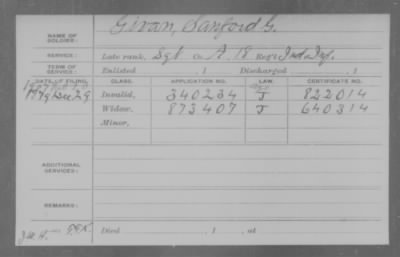 NAME OF SOLDIER: Givan, Sanford G.
SERVICE: Late rank, Sgt Co. A, 18 Reg't Ind. Inf.
TERM OF SERVICE: Enlisted , 1 Discharged , 1
DATE OF FILING. CLASS. APPLICATION NO. LAW. CERTIFICATE NO.
1879 Dec 29 Invalid, 340234 J 822014
Widow, 873407 J 640314
Minor,
ADDITIONAL SERVICES:
REMARKS:
Died , 1 , at